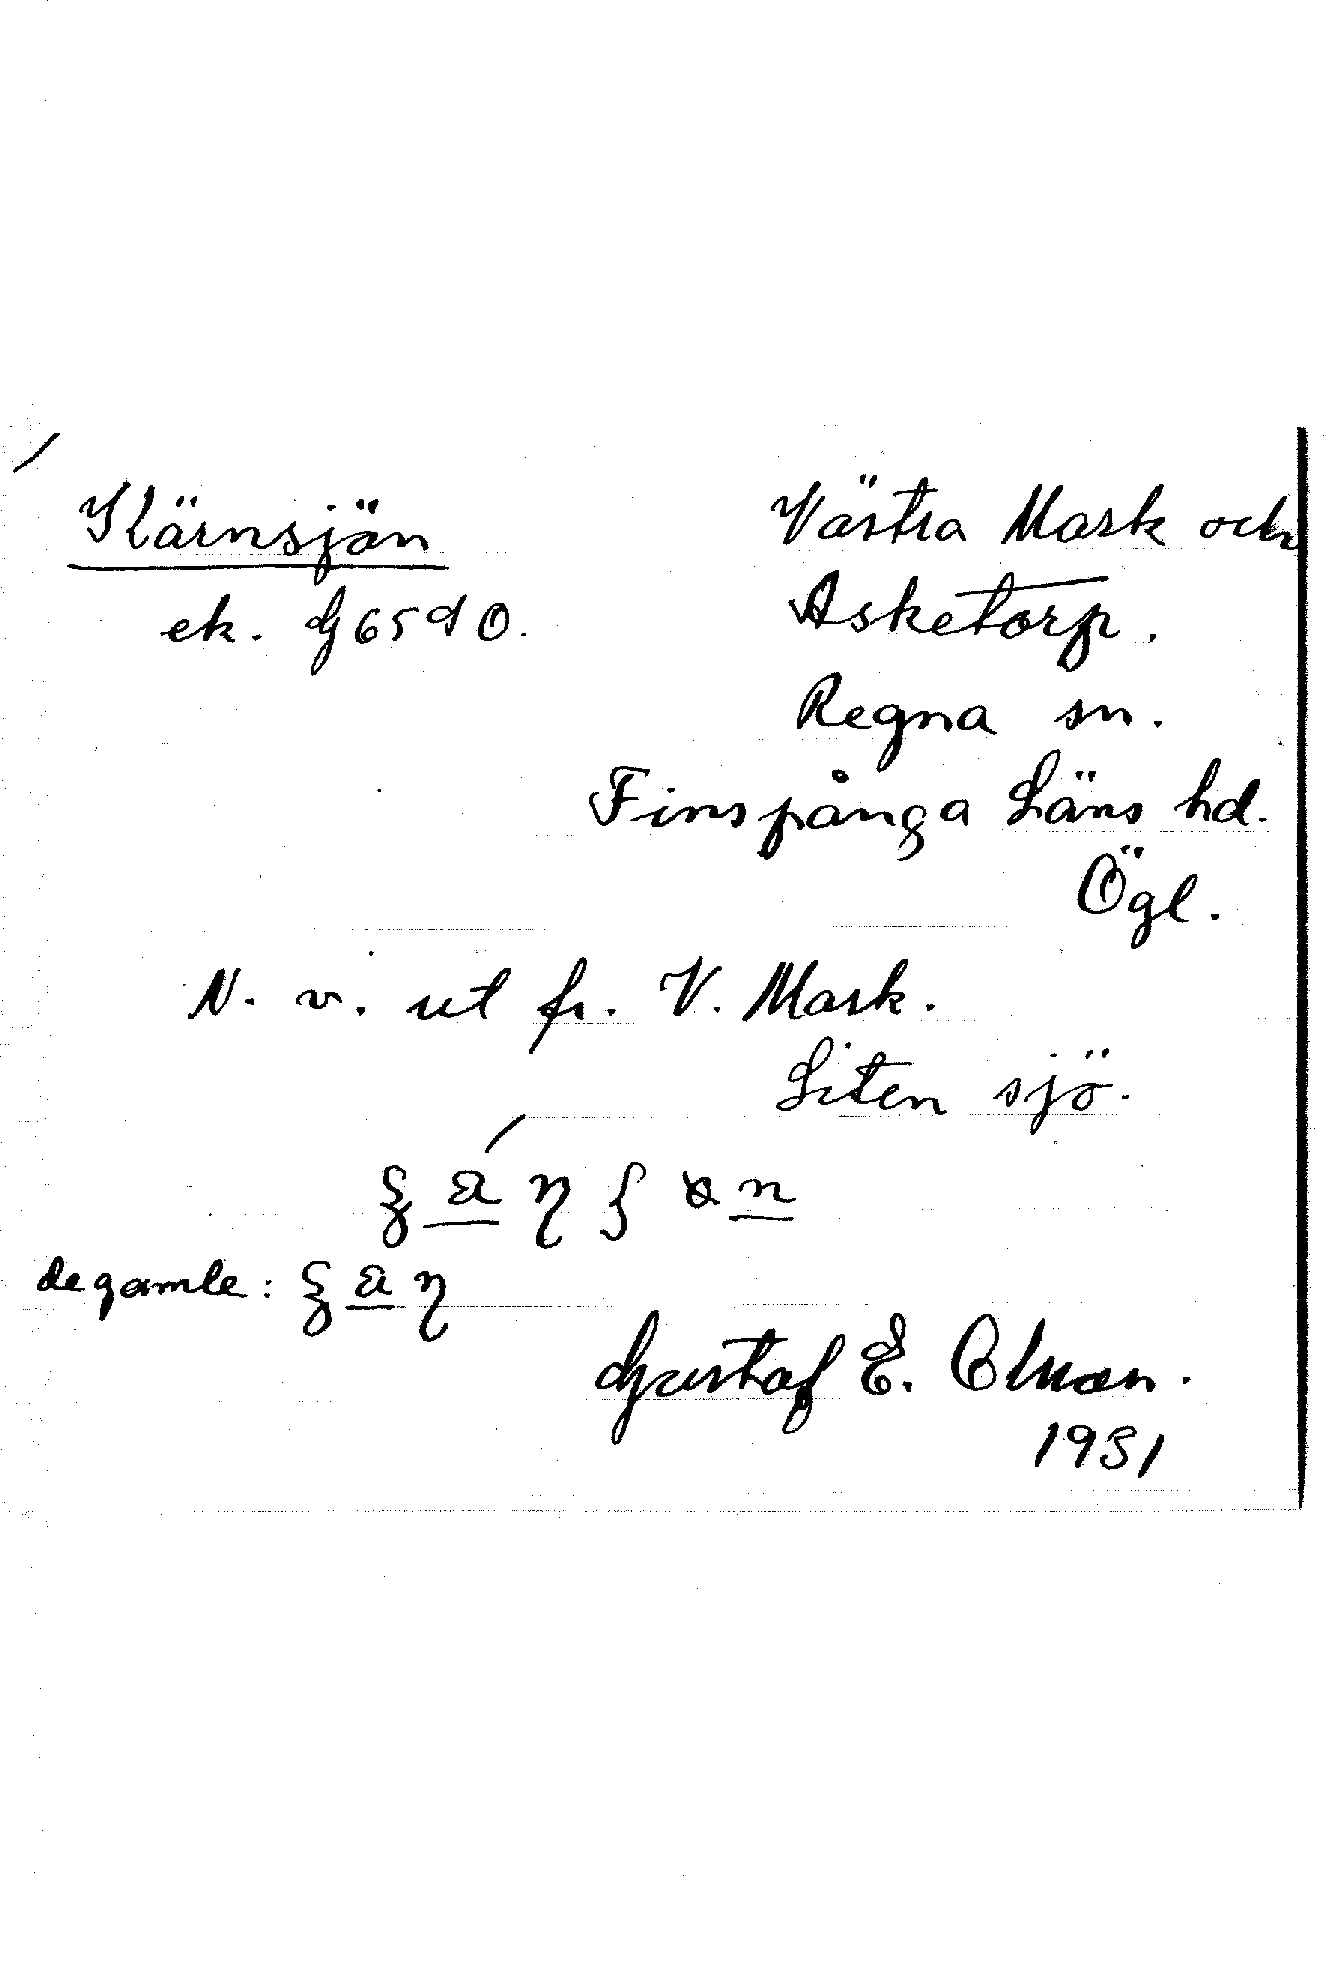 Kärnsjön
ek. G65d0.
Västra Mark och
Asketorp.
Regna sn.
Finspånga Läns hd.
Ögl.
N. v. ut fr. V. Mark.
Liten sjö.
de gamle:
Gustaf E.
1931